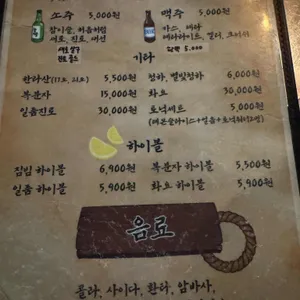 소주 5,000원
맥주 5,000원
참이슬, 처음처럼
새로, 진로,
카스, 테라
켈리, 크러시
기타
한라산(17도, 21도) 5,500원
청하, 별빛청하 6,000원
복분자 15,000원
화요 30,000원
일품진로 30,000원
토닉세트 5,000원
하이볼
짐빔 하이볼 6,900원
복분자 하이볼 5,500원
일품 하이볼 5,900원
화요 하이볼 5,900원
음료
콜라, 사이다, 환타, 암바사,